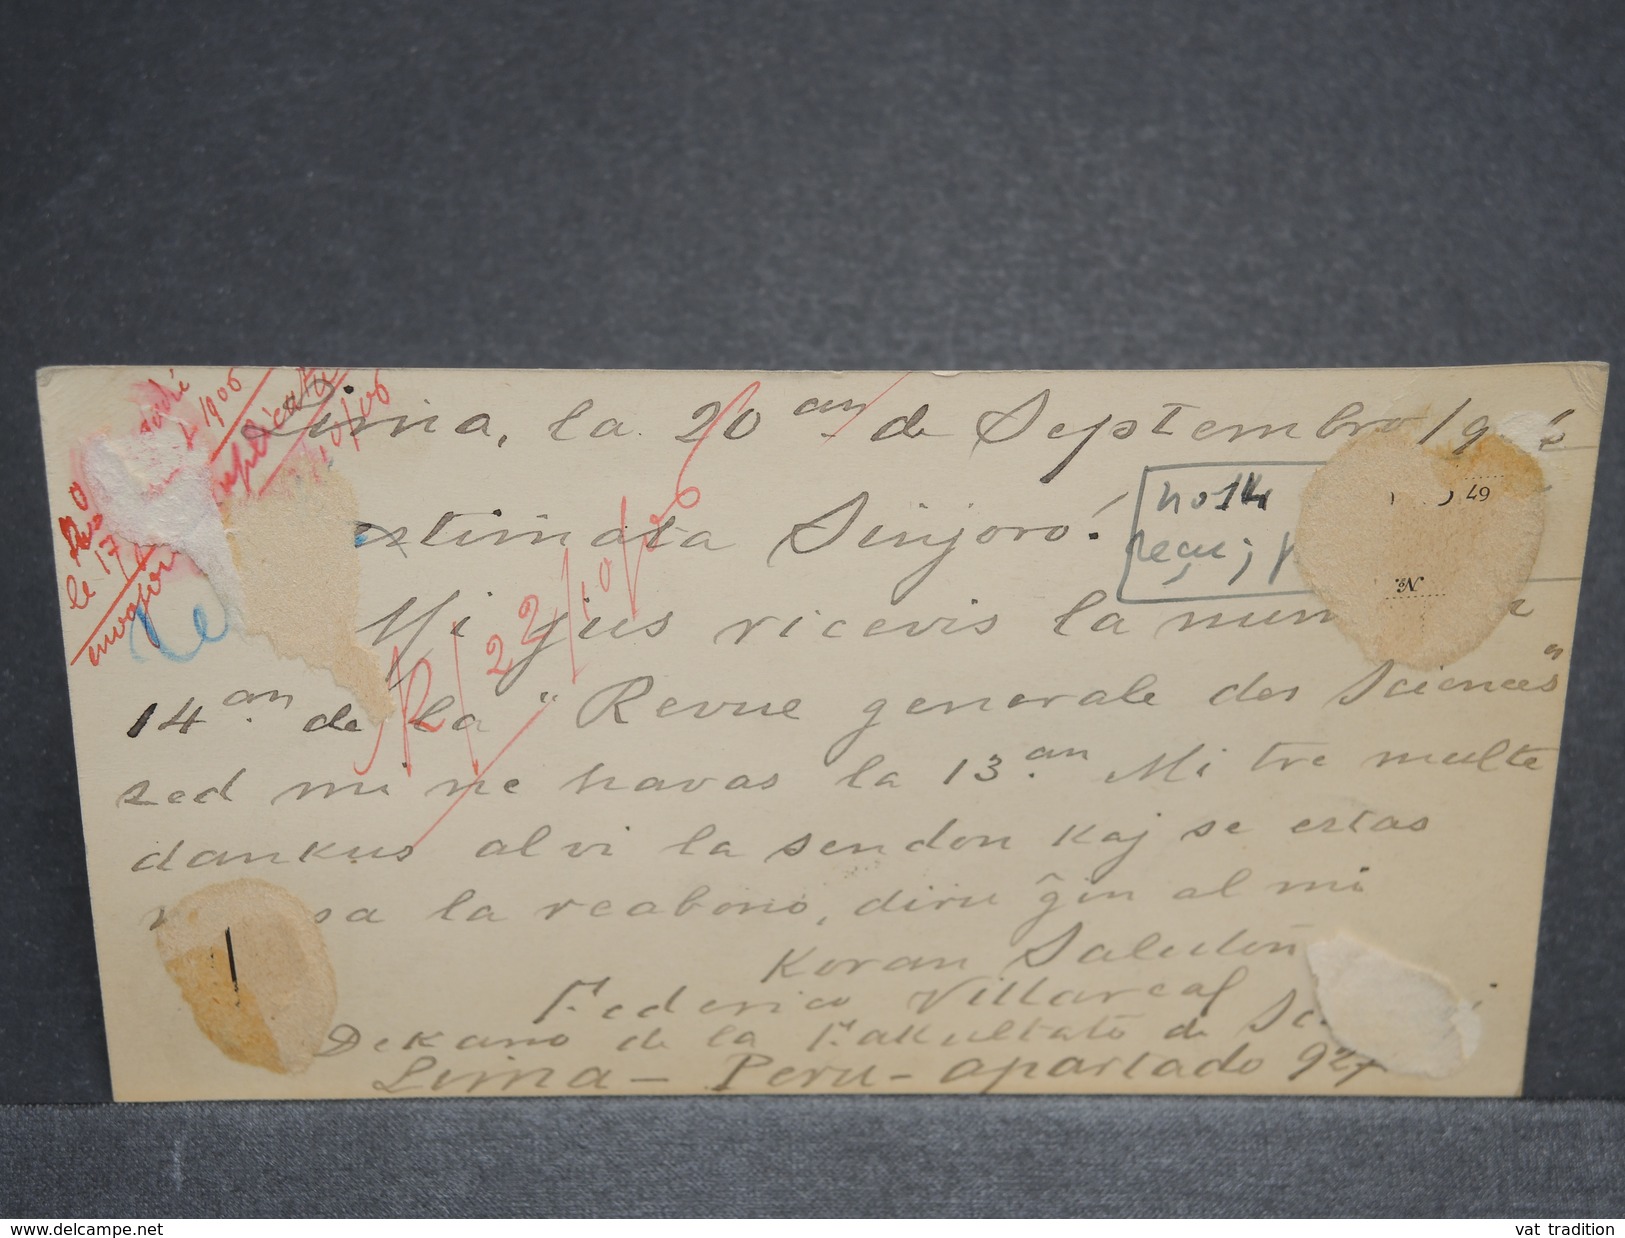 Lima, la 20an de Septembro 19
estimata Sinjoro!
no 14
reçu;
49
No.
Mi jus ricevis la num
14an de la "Revue generale des Sciences"
sed mi ne havas la 13an Mi tre multe
dankus al vi la sendon kaj se estas
sa la reabono, diru ĝin al mi
Koran Saludon
Federico Villareal
Dekano de la Fakultato de
Lima - Peru - apartado 927
R/22/10/06
1906
10/06
le 17
delcampe.net
vat tradition